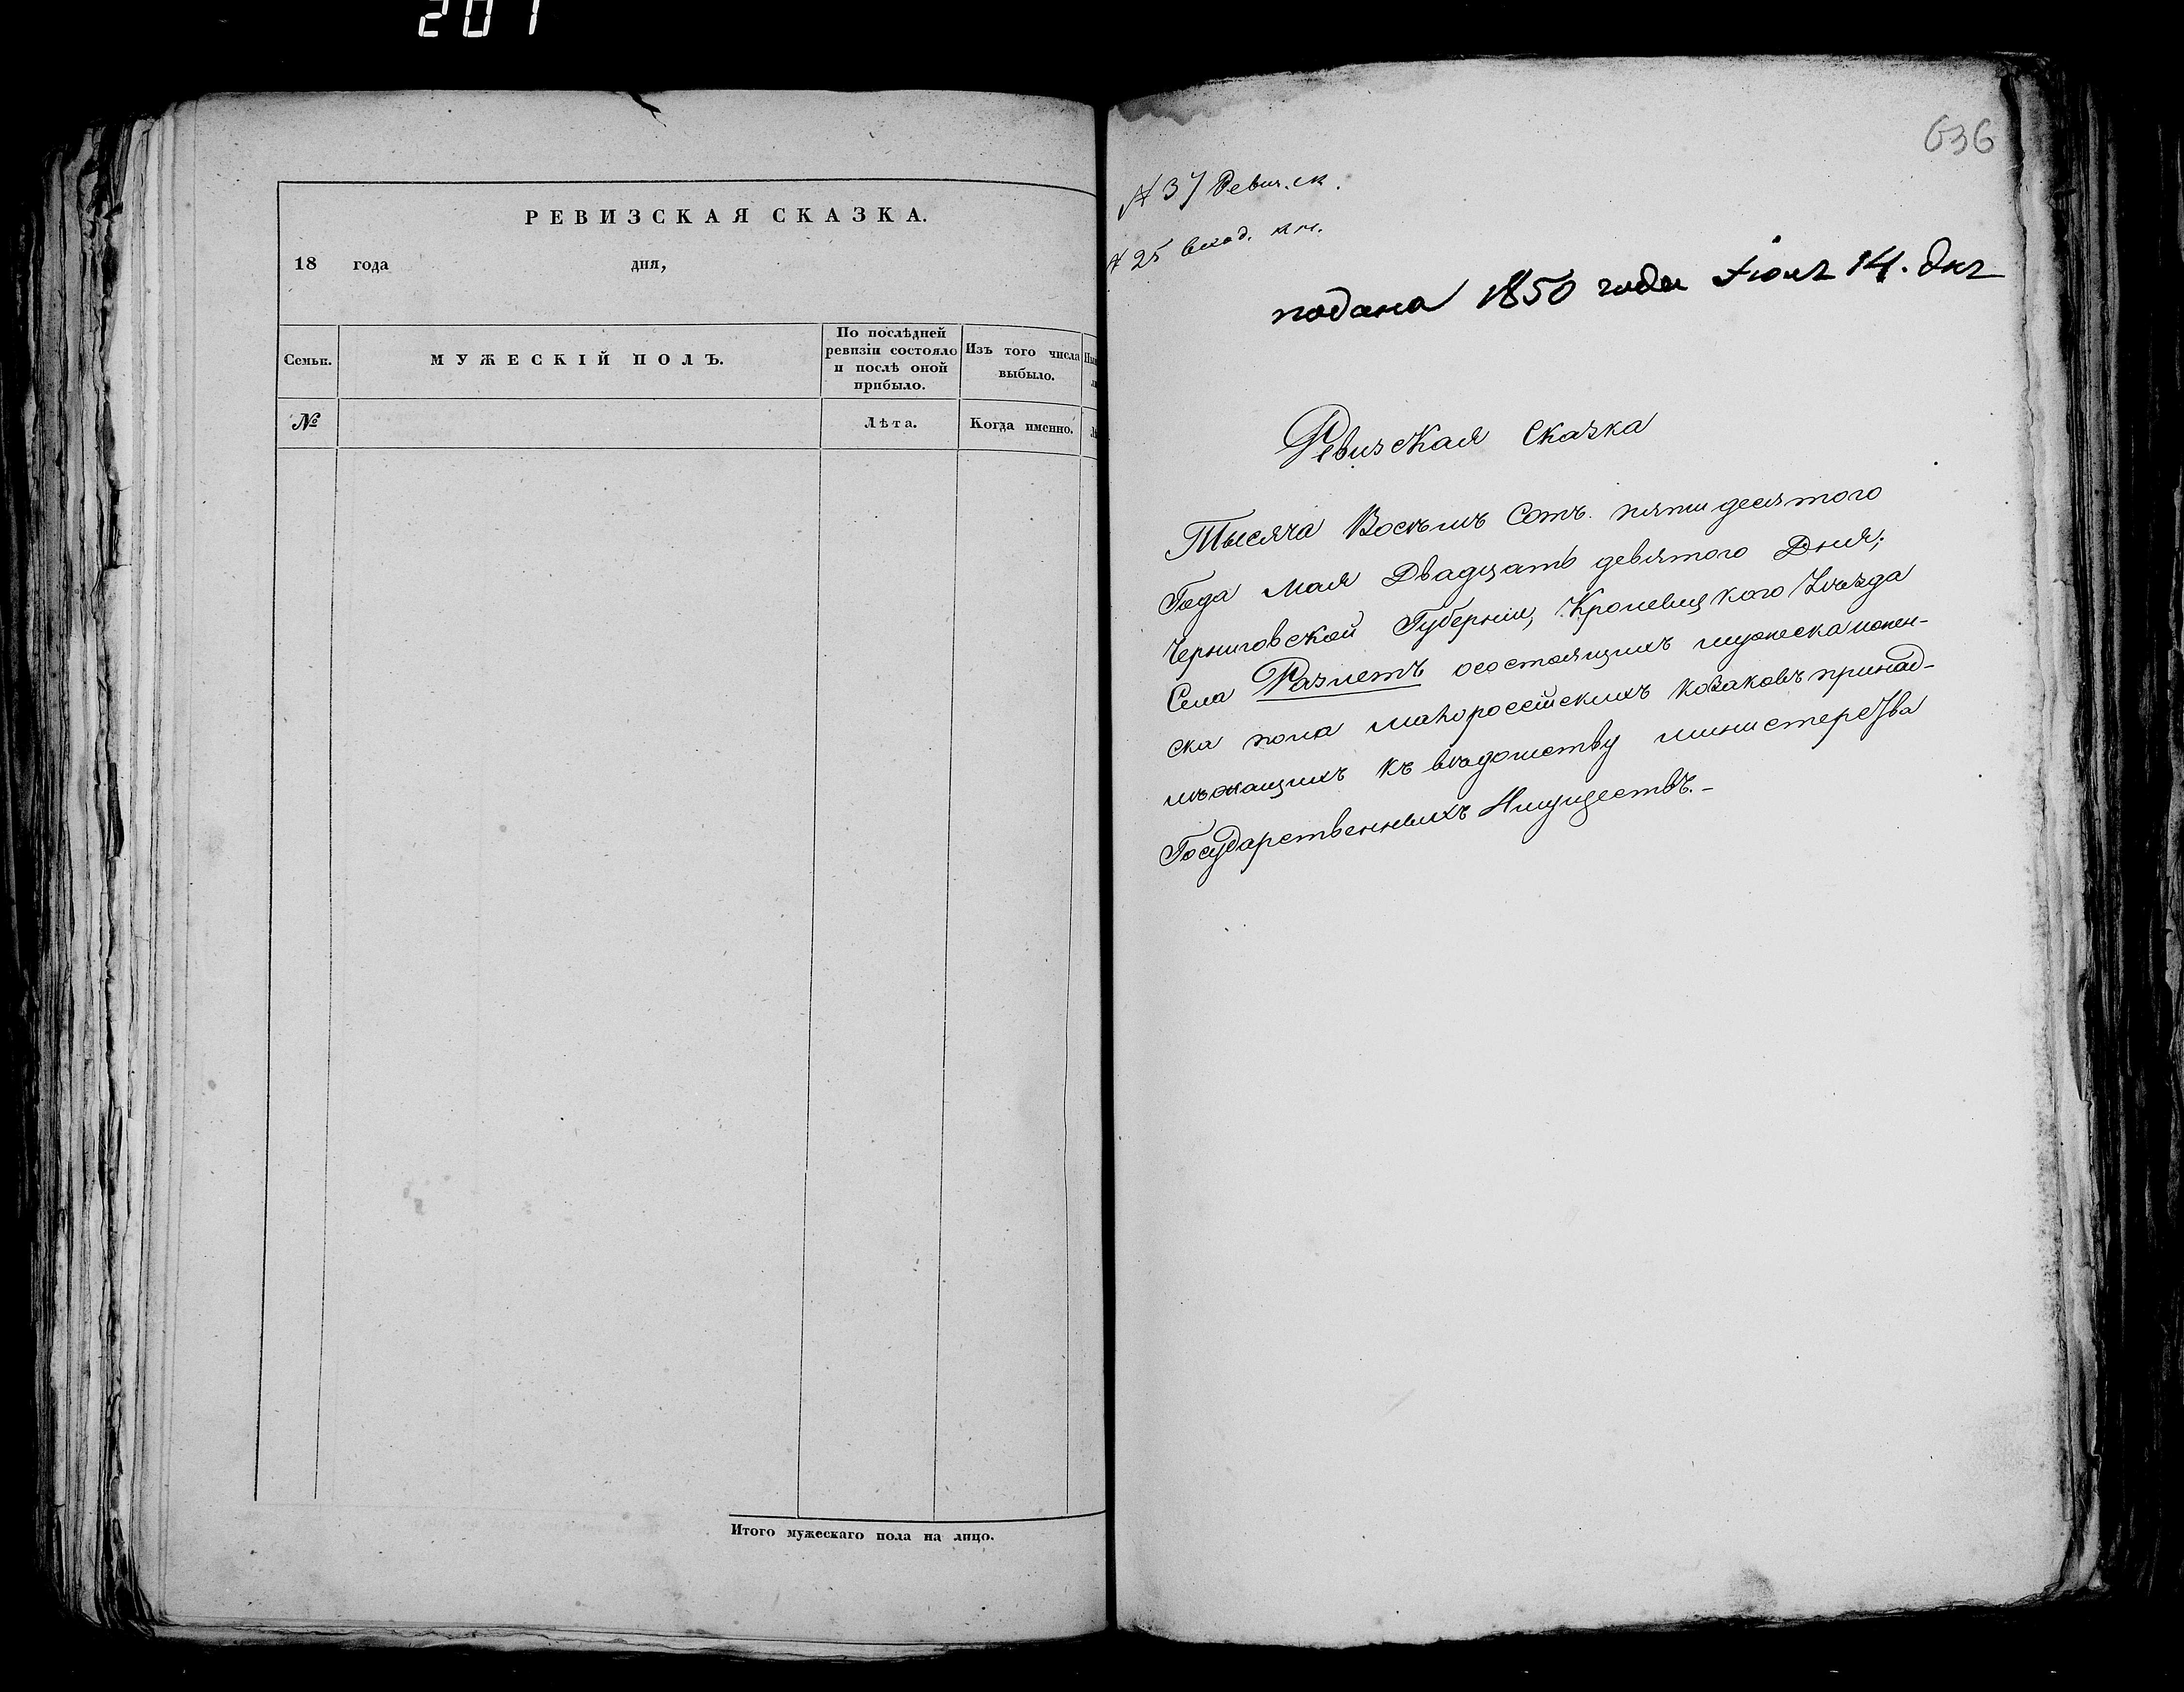 201
РЕВИЗСКАЯ СКАЗКА.
18 года дня,
Семьи.
МУЖЕСКІЙ ПОЛЪ.
По послѣдней
ревизіи состояло
и послѣ оной
прибыло.
Изъ того числа
выбыло.
№
Лѣта.
Когда именно.
Итого мужескаго пола на лицо.
636
№ 37 Ревиз. ск.
№ 25 вход. кн.
подана 1850 года Іюля 14. дня
Ревизская Сказка
Тысяча Восѣмъ Сотъ пятидесятого
Года мая Двадцать девятого Дня;
Черниговской Губерніи, Кролевицкого Уѣзда
Села Разлетъ осостоящихъ мужеска иженс-
ска пола малороссійскихъ козаковъ принад-
лѣжащихъ къ вѣдомству министерства
Государственныхъ Имуществъ.-